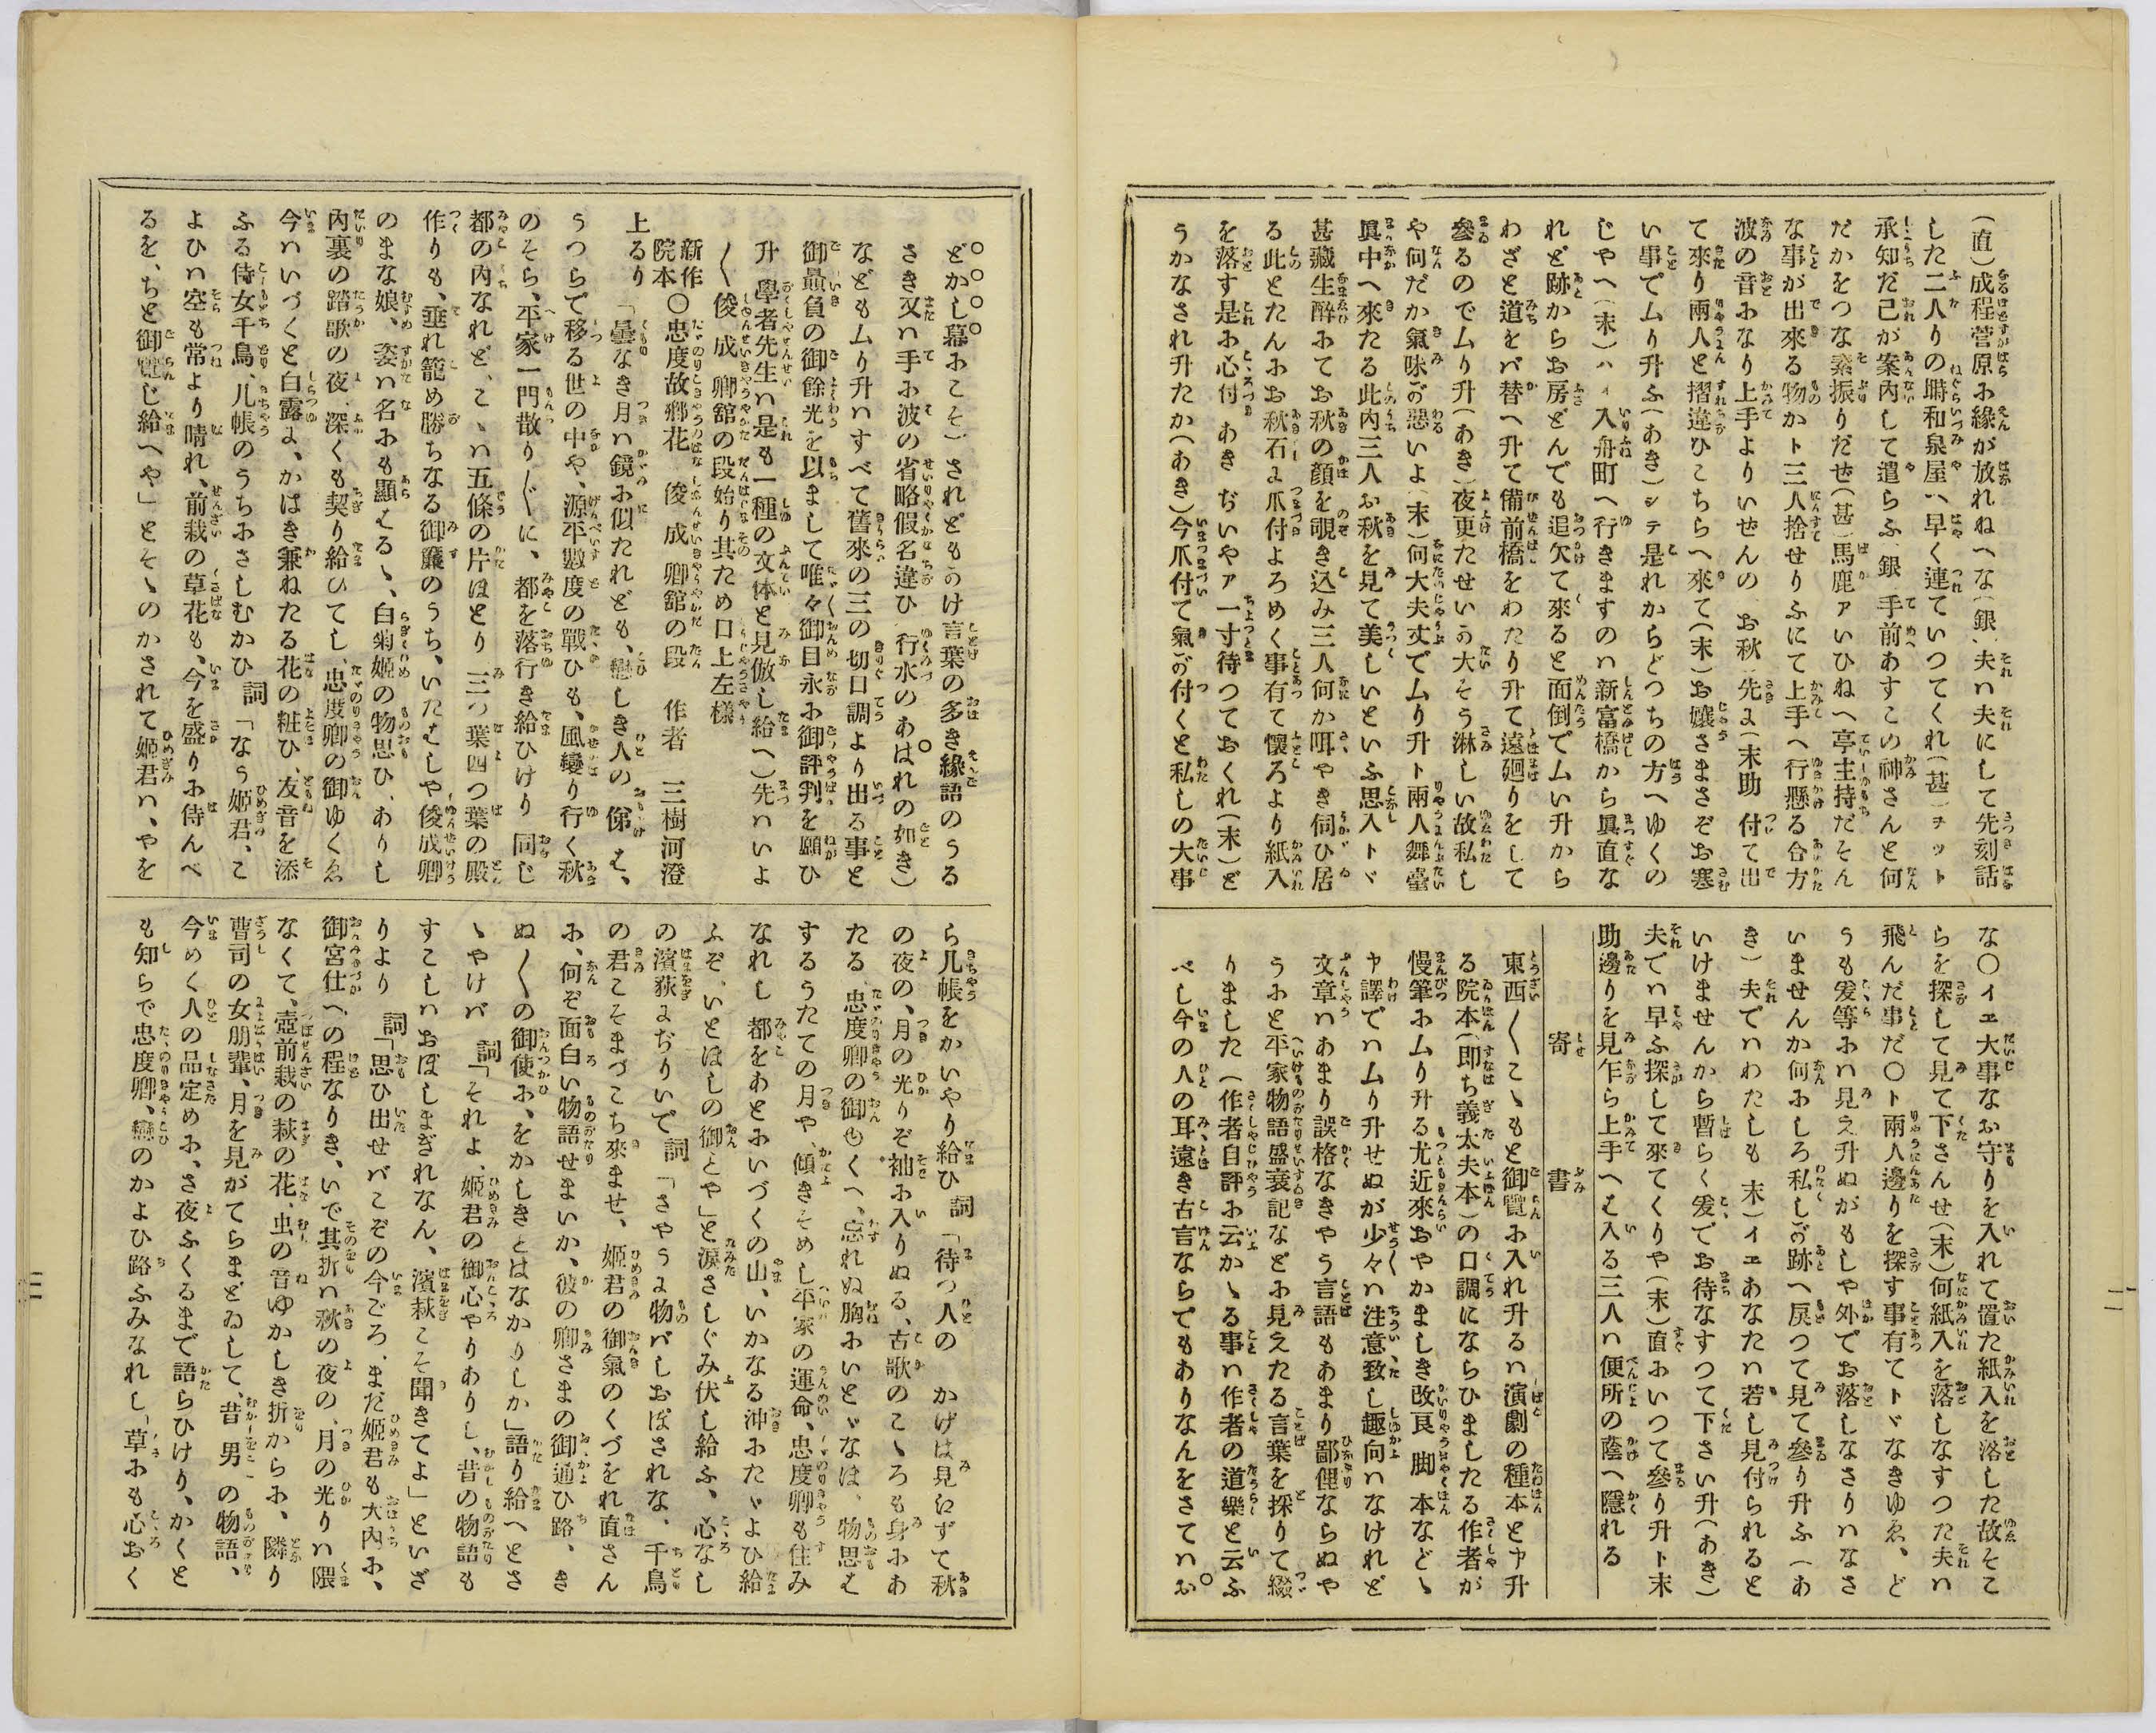 (直)成程菅原ふ緣が放れねへな(銀)夫ハ夫にして先刻話
した二人りの時和泉屋ハ早く連ていつてくれ(甚)チット
承知だ己が案內して遣らふ(銀)手前あすこの神さんと何
だかをつな素振りだぜ(甚)馬鹿ァいひねへ亭主持だそん
な事が出來る物かト三人捨せりふにて上手へ行懸る合方
波の音ふなり上手よりいせんのお秋先よ(末助)付て出
て來り兩人と摺違ひこちらへ來て(末)お孃さまさぞお寒
い事でムり升ふ(あき)シテ是れからどつちの方へゆくの
じやへ(末)ハイ入舟町へ行きますのハ新富橋から眞直な
れど跡からお房どんでも追欠て來ると面倒でムい升から
わざと道をバ替へ升て備前橋をわたり升て遠廻りをして
參るのでムり升(あき)夜更たせいか大そう淋しい故私し
や何だか氣味が惡いよ(末)何大夫丈でムり升ト兩人舞臺
眞中へ來たる此內三人お秋を見て美しいといふ思入トヾ
甚藏生醉ふてお秋の顏を覗き込み三人何か咡やき伺ひ居
る此とたんふお秋石よ爪付よろめく事有て懷ろより紙入
を落す是ふ心付(あき)ぢいやァ一寸待つておくれ(末)ど
うかなされ升たか(あき)今爪付て氣が付くと私しの大事
な〇イヱ大事なお守りを入れて置た紙入を落した故そこ
らを探して見て下さんせ(末)何紙入を落しなすつた夫ハ
飛んだ事だ〇ト兩人邊りを探す事有てトヾなきゆゑ、ど
うも爰等ふハ見え升ぬがもしや外でお落しなさりハなさ
いませんか何ふしろ私しが跡へ戾つて見て參り升ふ(あ
き)夫でハわたしも(末)イヱあなたハ若し見付られると
いけませんから暫らく爰でお待なすつて下さい升(あき)
夫でハ早ふ探して來てくりや(末)直ふいつて參り升ト末
助邊りを見乍ら上手へ這入る三人ハ便所の蔭へ隱れる
寄書
東西〱こゝもと御覽ふ入れ升るハ演劇の種本と申升
る院本(即ち義太夫本)の口調にならひましたる作者が
慢筆ふムり升る尤近來おやかましき改良脚本などゝ
申譯でハムり升せぬが少々ハ注意致し趣向ハなけれど
文章ハあまり誤格なきやう言語もあまり鄙俚ならぬや
うふと平家物語盛衰記などふ見えたる言葉を採りて綴
りました(作者自評ふ云かゝる事ハ作者の道樂と云ふ
べし今の人の耳遠き古言ならでもありなんをさてハお
どかし幕ふこそ)されどもかけ言葉の多き緣語のうる
さき又ハ手ふ波の省略假名違ひ(行水のあはれの如き)
などもムり升ハすべて舊來の三の切口調より出る事と
御贔負の御餘光を以まして唯々御目永ふ御評判を願ひ
升(學者先生ハ是も一種の文体と見倣し給へ)先ハいよ
〱俊成卿舘の段始り其ため口上左樣
新作院本〇忠度故鄕花 俊成卿舘の段 作者 三樹河澄
上るり「曇なき月ハ鏡ふ似たれども、戀しき人の俤は、
うつらで移る世の中や、源平數度の戰ひも、風變り行く秋
のそら、平家一門散り〲に、都を落行き給ひけり 同じ
都の內なれど、こゝハ五條の片ほとり 三つ葉四つ葉の殿
作りも、垂れ籠め勝ちなる御簾のうち、いたはしや俊成卿
のまな娘、姿ハ名ふも顯はるゝ、白菊姬の物思ひ、ありし
內裏の踏歌の夜、深くも契り給ひてし、忠度卿の御ゆくゑ
今ハいづくと白露よ、かはき兼ねたる花の粧ひ、友音を添
ふる侍女千鳥、几帳のうちふさしむかひ 詞「なう姬君、こ
よひハ空も常より晴れ、前栽の草花も、今を盛りふ侍んべ
るを、ちと御覽じ給へや」とそゝのかされて姬君ハ、やを
ら几帳をかいやり給ひ 詞「待つ人の かげは見はずて秋
の夜の、月の光りぞ袖ふ入りぬる、古歌のこゝろも身ふあ
たる 忠度卿の御もくへ、忘れぬ胸ふいとゞなほ、物思は
するうたての月や、傾きそめし平家の運命、忠度卿も住み
なれし 都をあとふいづくの山、いかなる沖ふたゞよひ給
ふぞ、いとほしの御とや」と淚さしぐみ伏し給ふ、心なし
の濱荻よぢりいで 詞「さやうよ物バしおぼされな、千鳥
の君こそまづこち來ませ、姬君の御氣のくづをれ直さん
ふ、何ぞ面白い物語せまいか、彼の卿さまの御通ひ路、き
ぬ〲の御使ふ、をかしきとはなかりしか」語り給へとさ
ゝやけバ 詞「それよ、姬君の御心やりありし、昔の物語も
すこしハおぼしまぎれなん、濱萩こそ聞きてよ」といざ
りより 詞「思ひ出せバこぞの今ごろ、まだ姬君も大內ふ、
御宮仕への程なりき、いで其折ハ秋の夜の、月の光りハ隈
なくて、壺前栽の萩の花、虫の音ゆかしき折からふ、隣り
曹司の女朋輩、月を見がてらまどゐして、昔男の物語、
今めく人の品定めふ、さ夜ふくるまで語らひけり、かくと
も知らで忠度卿、戀のかよひ路ふみなれし「草ふも心おく